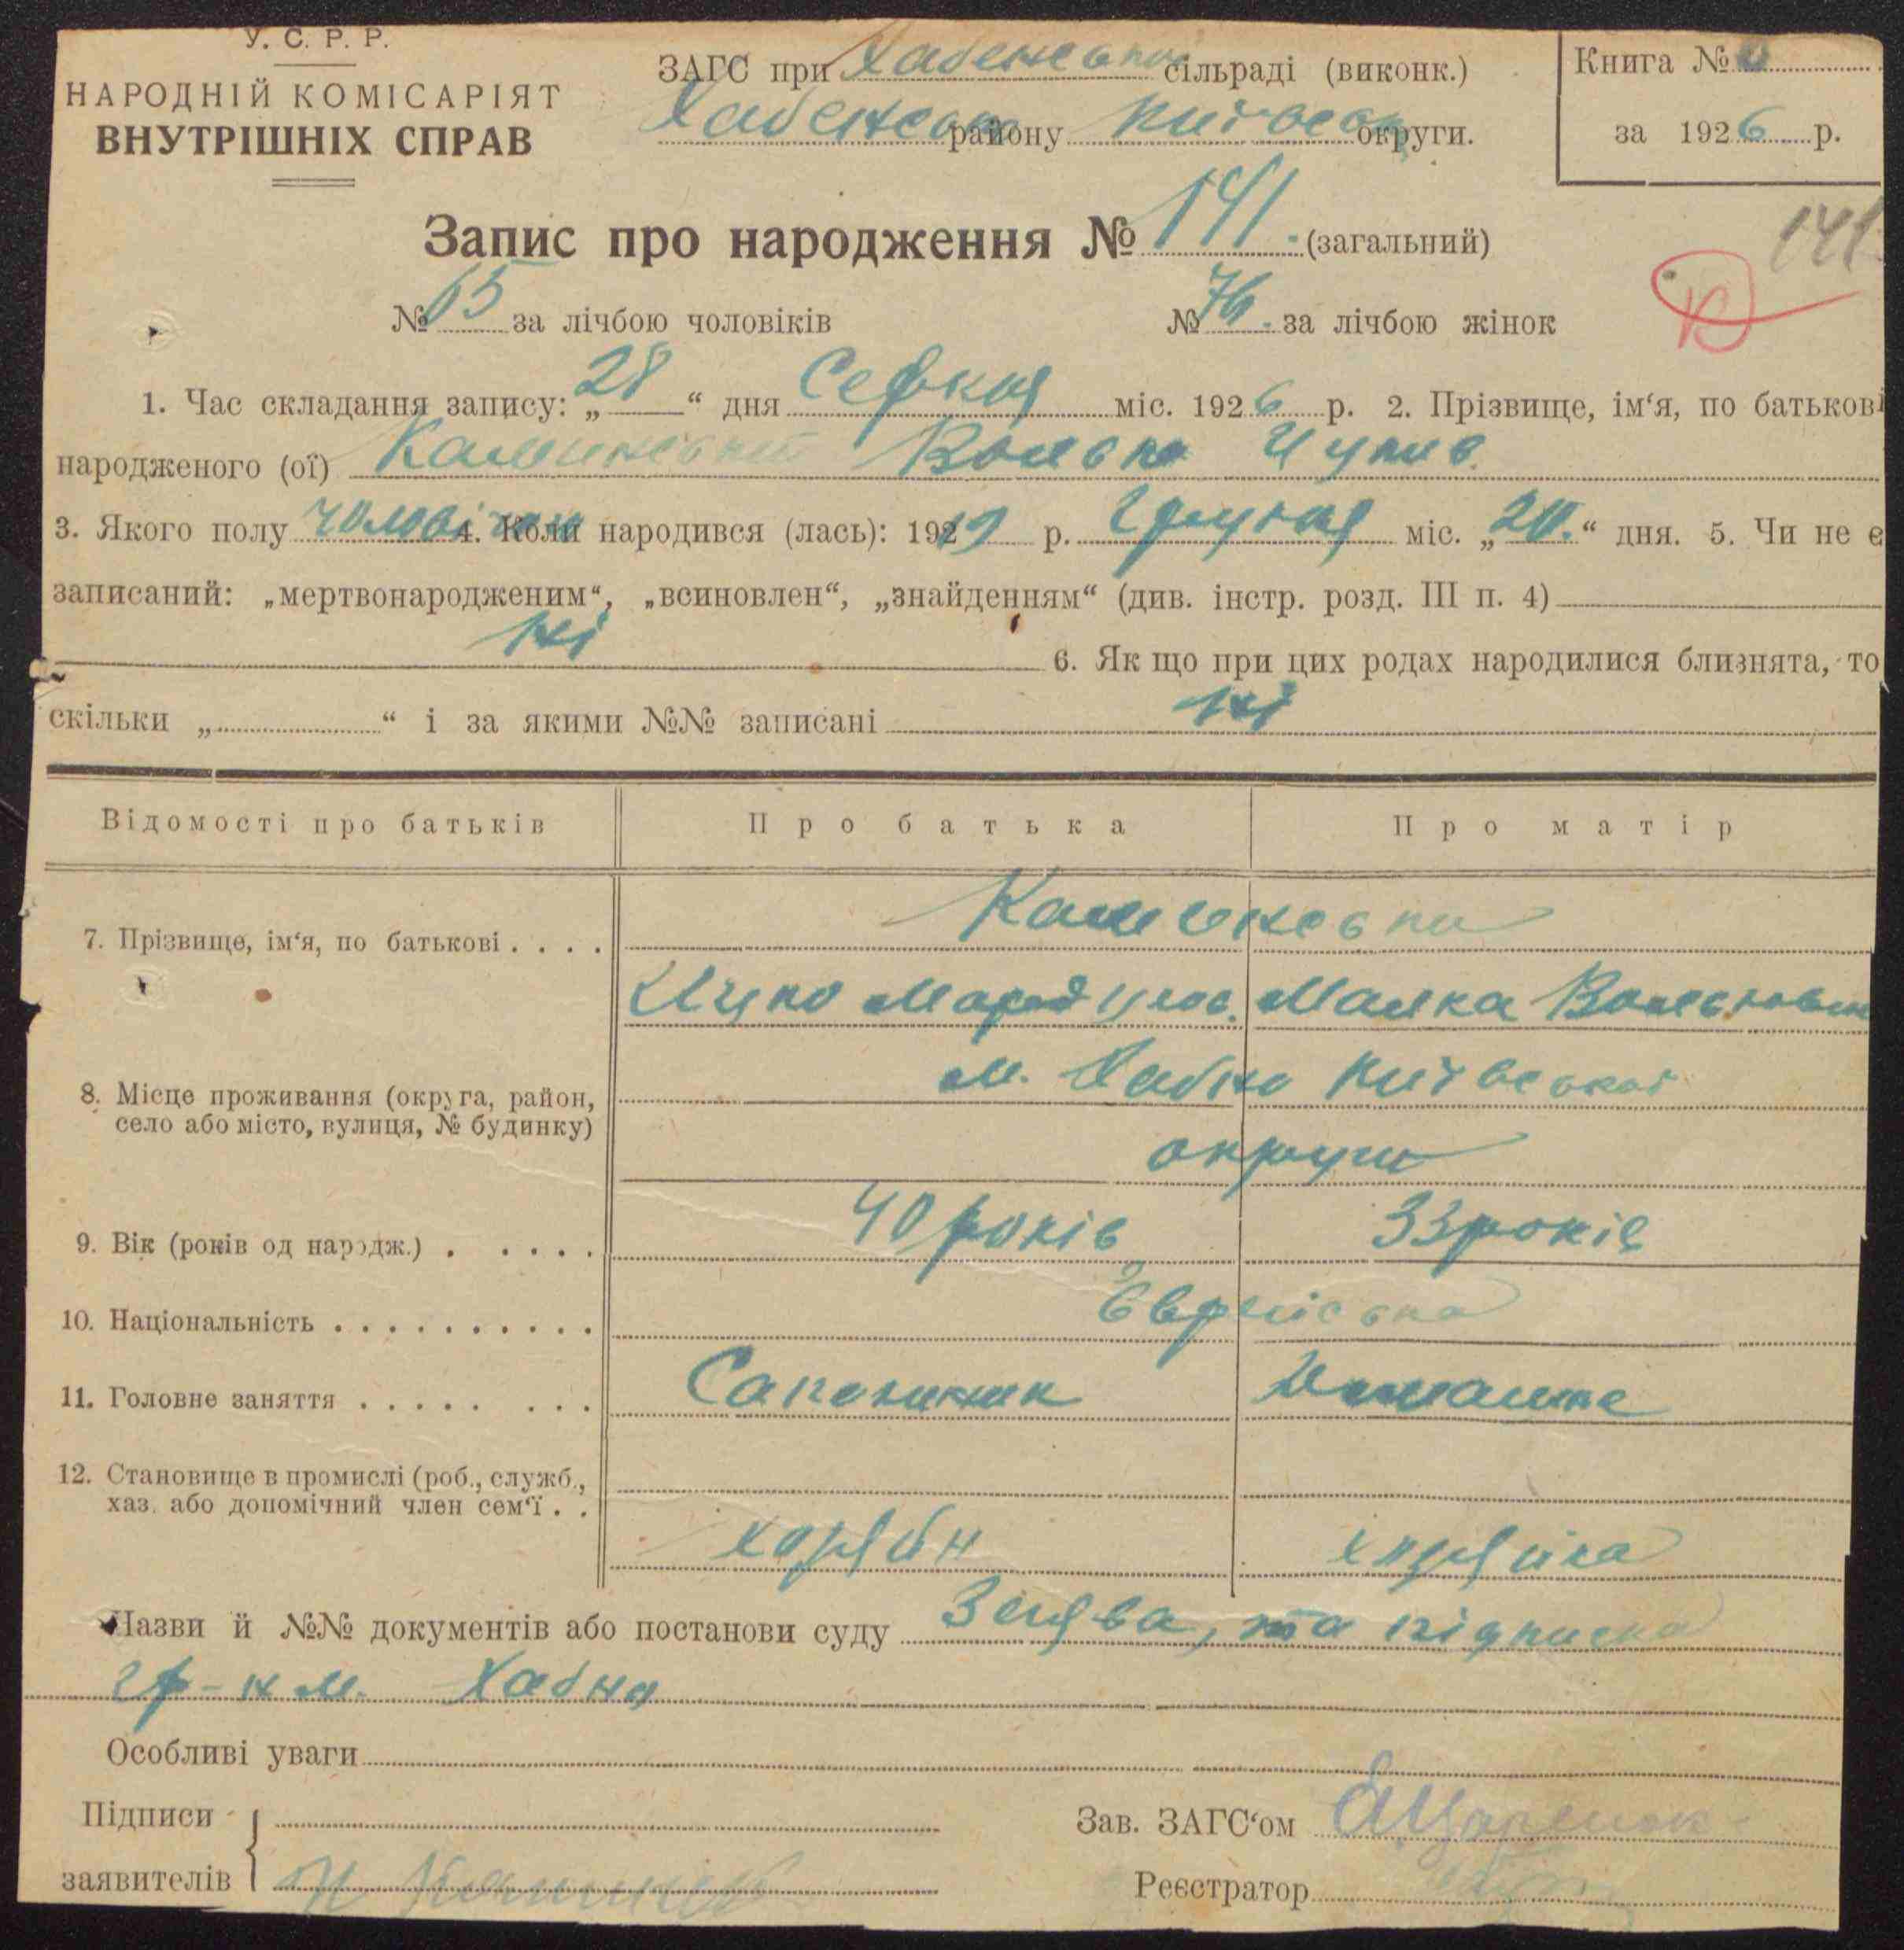 У. С. Р. Р.
НАРОДНІЙ КОМІСАРІЯТ
ВНУТРІШНІХ СПРАВ
ЗАГС при сільраді (виконк.)
району округи.
Книга №
за 1926 р.
Запис про народження № 141. (загальний)
141
№ 65 за лічбою чоловіків № 76. за лічбою жінок
1. Час складання запису: „28“ дня Серпня міс. 1926 р. 2. Прізвище, ім‘я, по батькові
народженого (ої)
3. Якого полу чоловічого 4. Коли народився (лась): 1919 р. Грудня міс. „20.“ дня. 5. Чи не є
записаний: „мертвонародженим“, „всиновлен“, „знайденням“ (див. інстр. розд. III п. 4)
ні 6. Як що при цих родах народилися близнята, то
скільки „ “ і за якими №№ записані ні
Відомості про батьків Про батька Про матір
7. Прізвище, ім‘я, по батькові . . . .
Малка
8. Місце проживання (округа, район,
село або місто, вулиця, № будинку)
м. Хабно Київської
округи
9. Вік (років од народж.) . . . . . 40 років 33 років
10. Національність . . . . . . . . . . Єврейська
11. Головне заняття . . . . . . . .
12. Становище в промислі (роб., служб.,
хаз. або допомічний член сем‘ї . .
хазяїн хазяйка
Назви й №№ документів або постанови суду Заява, та підписка
гр-н м. Хабна
Особливі уваги
Підписи
заявителів
Зав. ЗАГС‘ом
Реєстратор